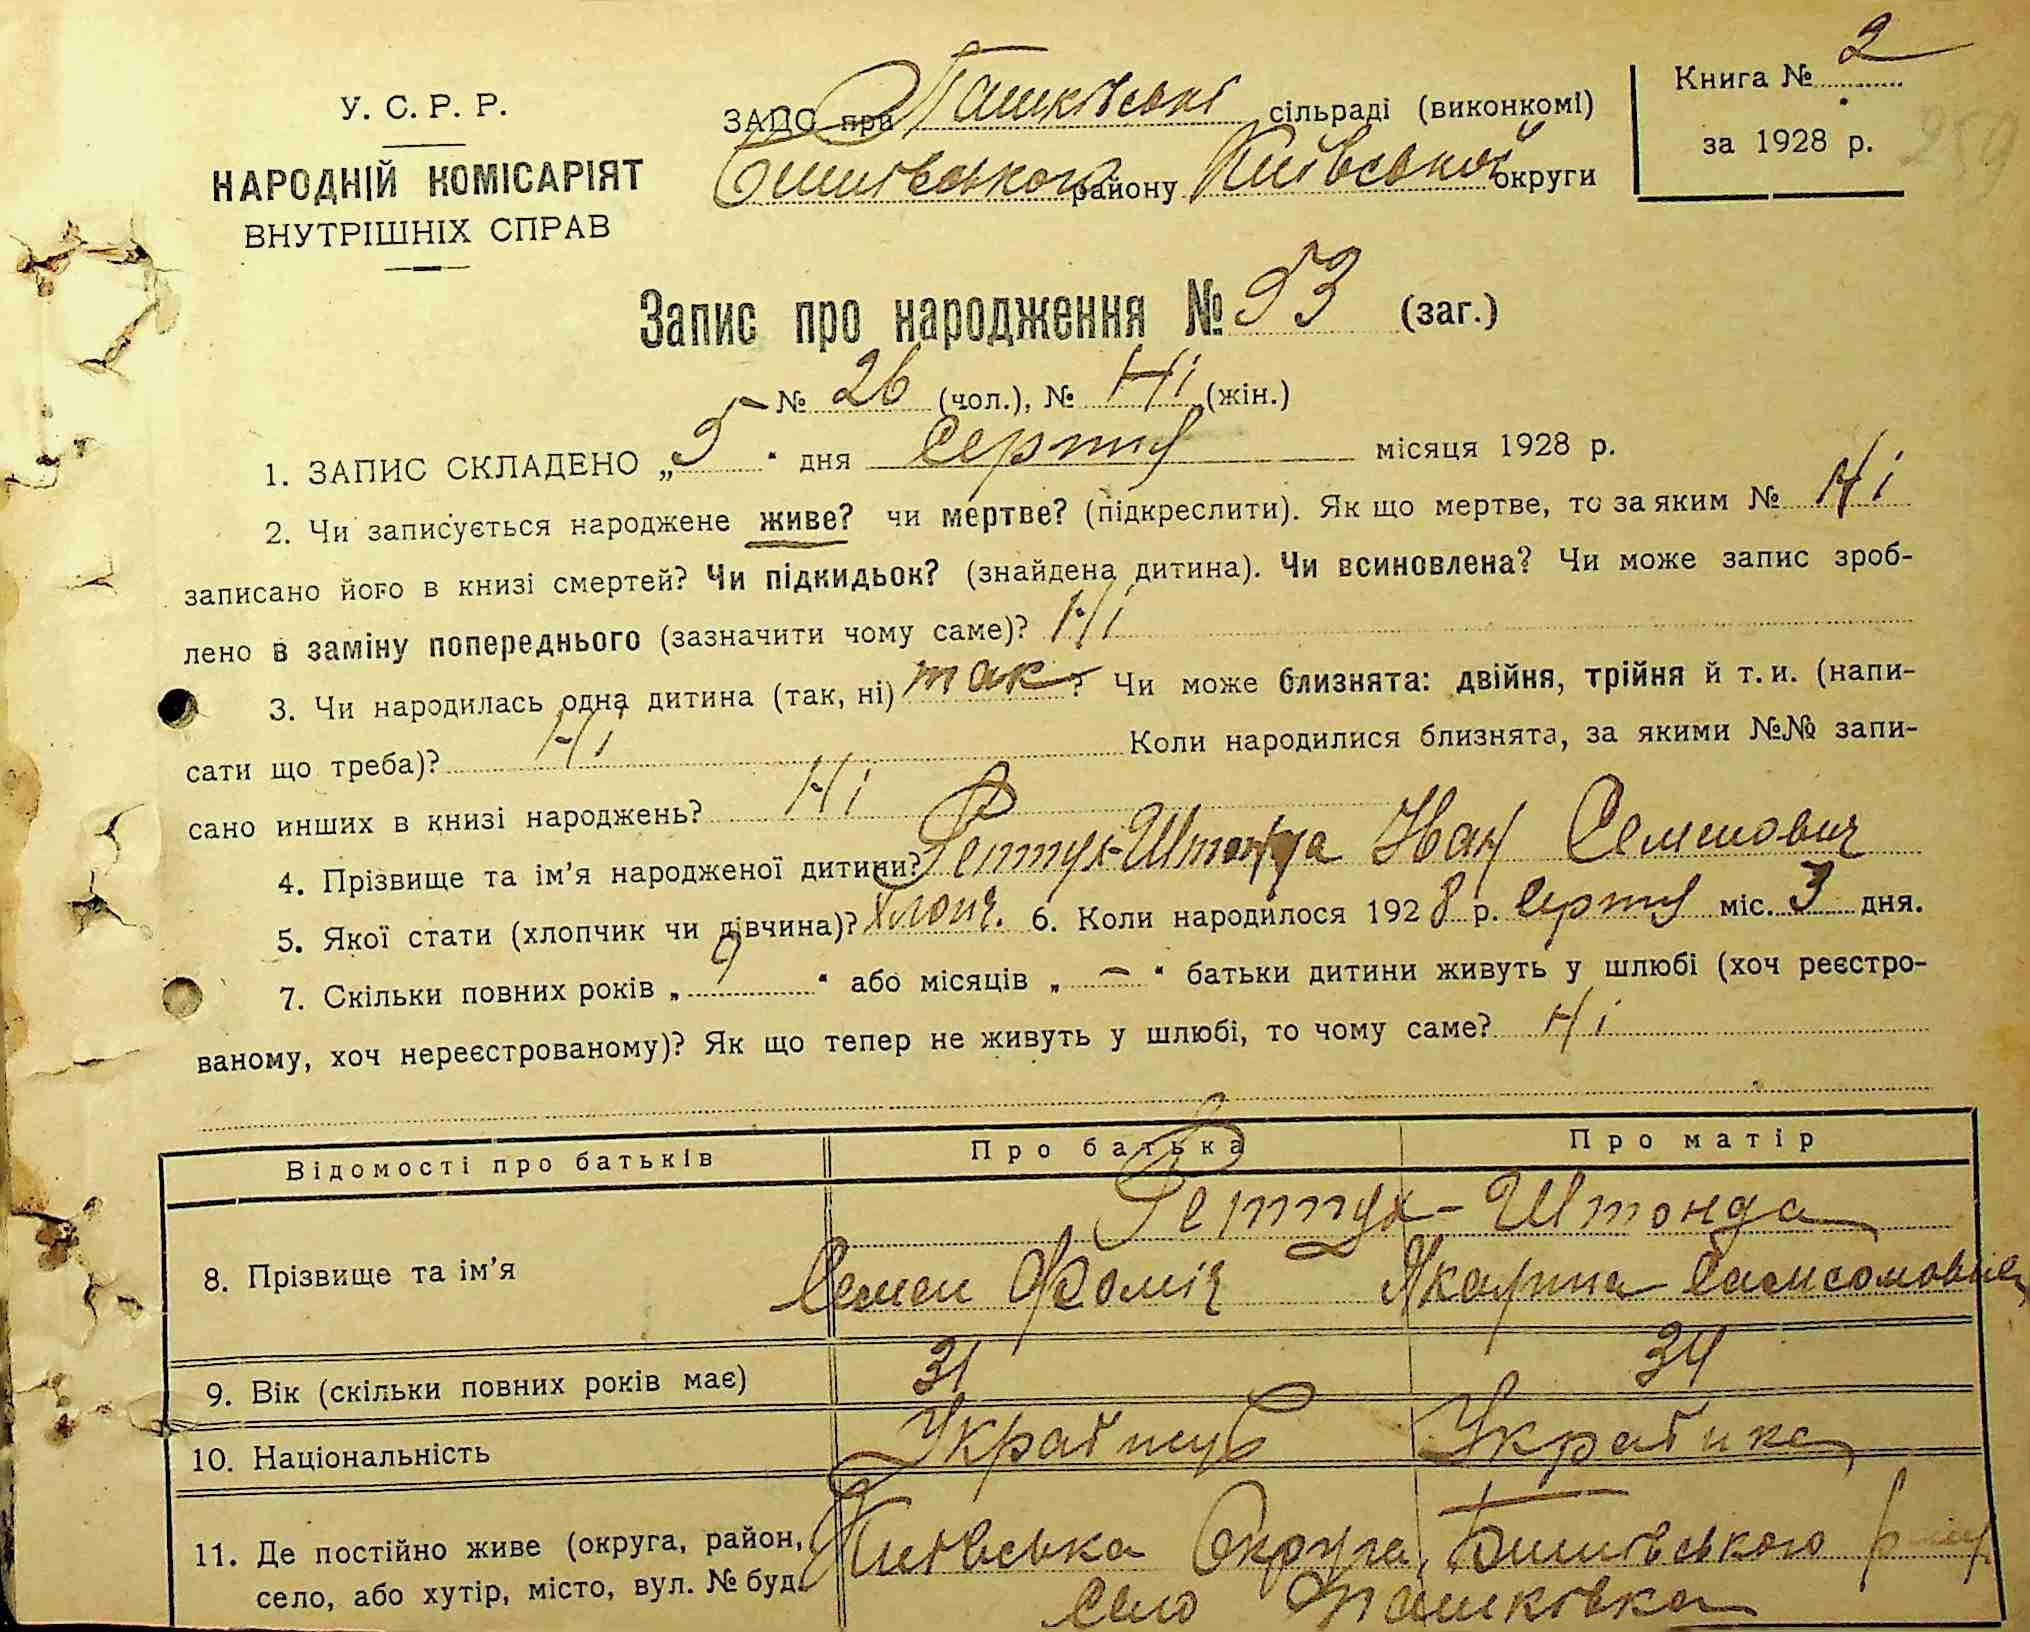 Книга № 2
за 1928 р.
259
У. С. Р. Р.
НАРОДНІЙ КОМІСАРІЯТ
ВНУТРІШНІХ СПРАВ
ЗАПС при Пашківські сільраді (виконкомі)
Бишівського району Київської округи
Запис про народження № 53 (заг.)
№ 26 (чол.), № Ні (жін.)
1. ЗАПИС СКЛАДЕНО „5“ дня Серпня місяця 1928 р.
2. Чи записується народжене живе? чи мертве? (підкреслити). Як що мертве, то за яким № Ні
записано його в книзі смертей? Чи підкидьок? (знайдена дитина). Чи всиновлена? Чи може запис зроб-
лено в заміну попереднього (зазначити чому саме)? Ні
3. Чи народилась одна дитина (так, ні) так? Чи може близнята: двійня, трійня й т. и. (напи-
сати що треба)? Ні Коли народилися близнята, за якими №№ запи-
сано инших в книзі народжень? Ні
4. Прізвище та ім’я народженої дитини? Рептух-Штонда Іван Семенович
5. Якої стати (хлопчик чи дівчина)? Хлопч. 6. Коли народилося 1928 р. Серпня міс. 3 дня.
7. Скільки повних років „9“ або місяців „–“ батьки дитини живуть у шлюбі (хоч реєстро-
ваному, хоч нереєстрованому)? Як що тепер не живуть у шлюбі, то чому саме? Ні
Відомості про батьків Про батька Про матір
Рептух-Штонда
8. Прізвище та ім’я Семен Фоміч Якарина Самсомовна
9. Вік (скільки повних років має) 31 34
10. Національність Українець Українка
11. Де постійно живе (округа, район, Київська Округа, Бишівського
село, або хутір, місто, вул. № буд. Село Пашковка